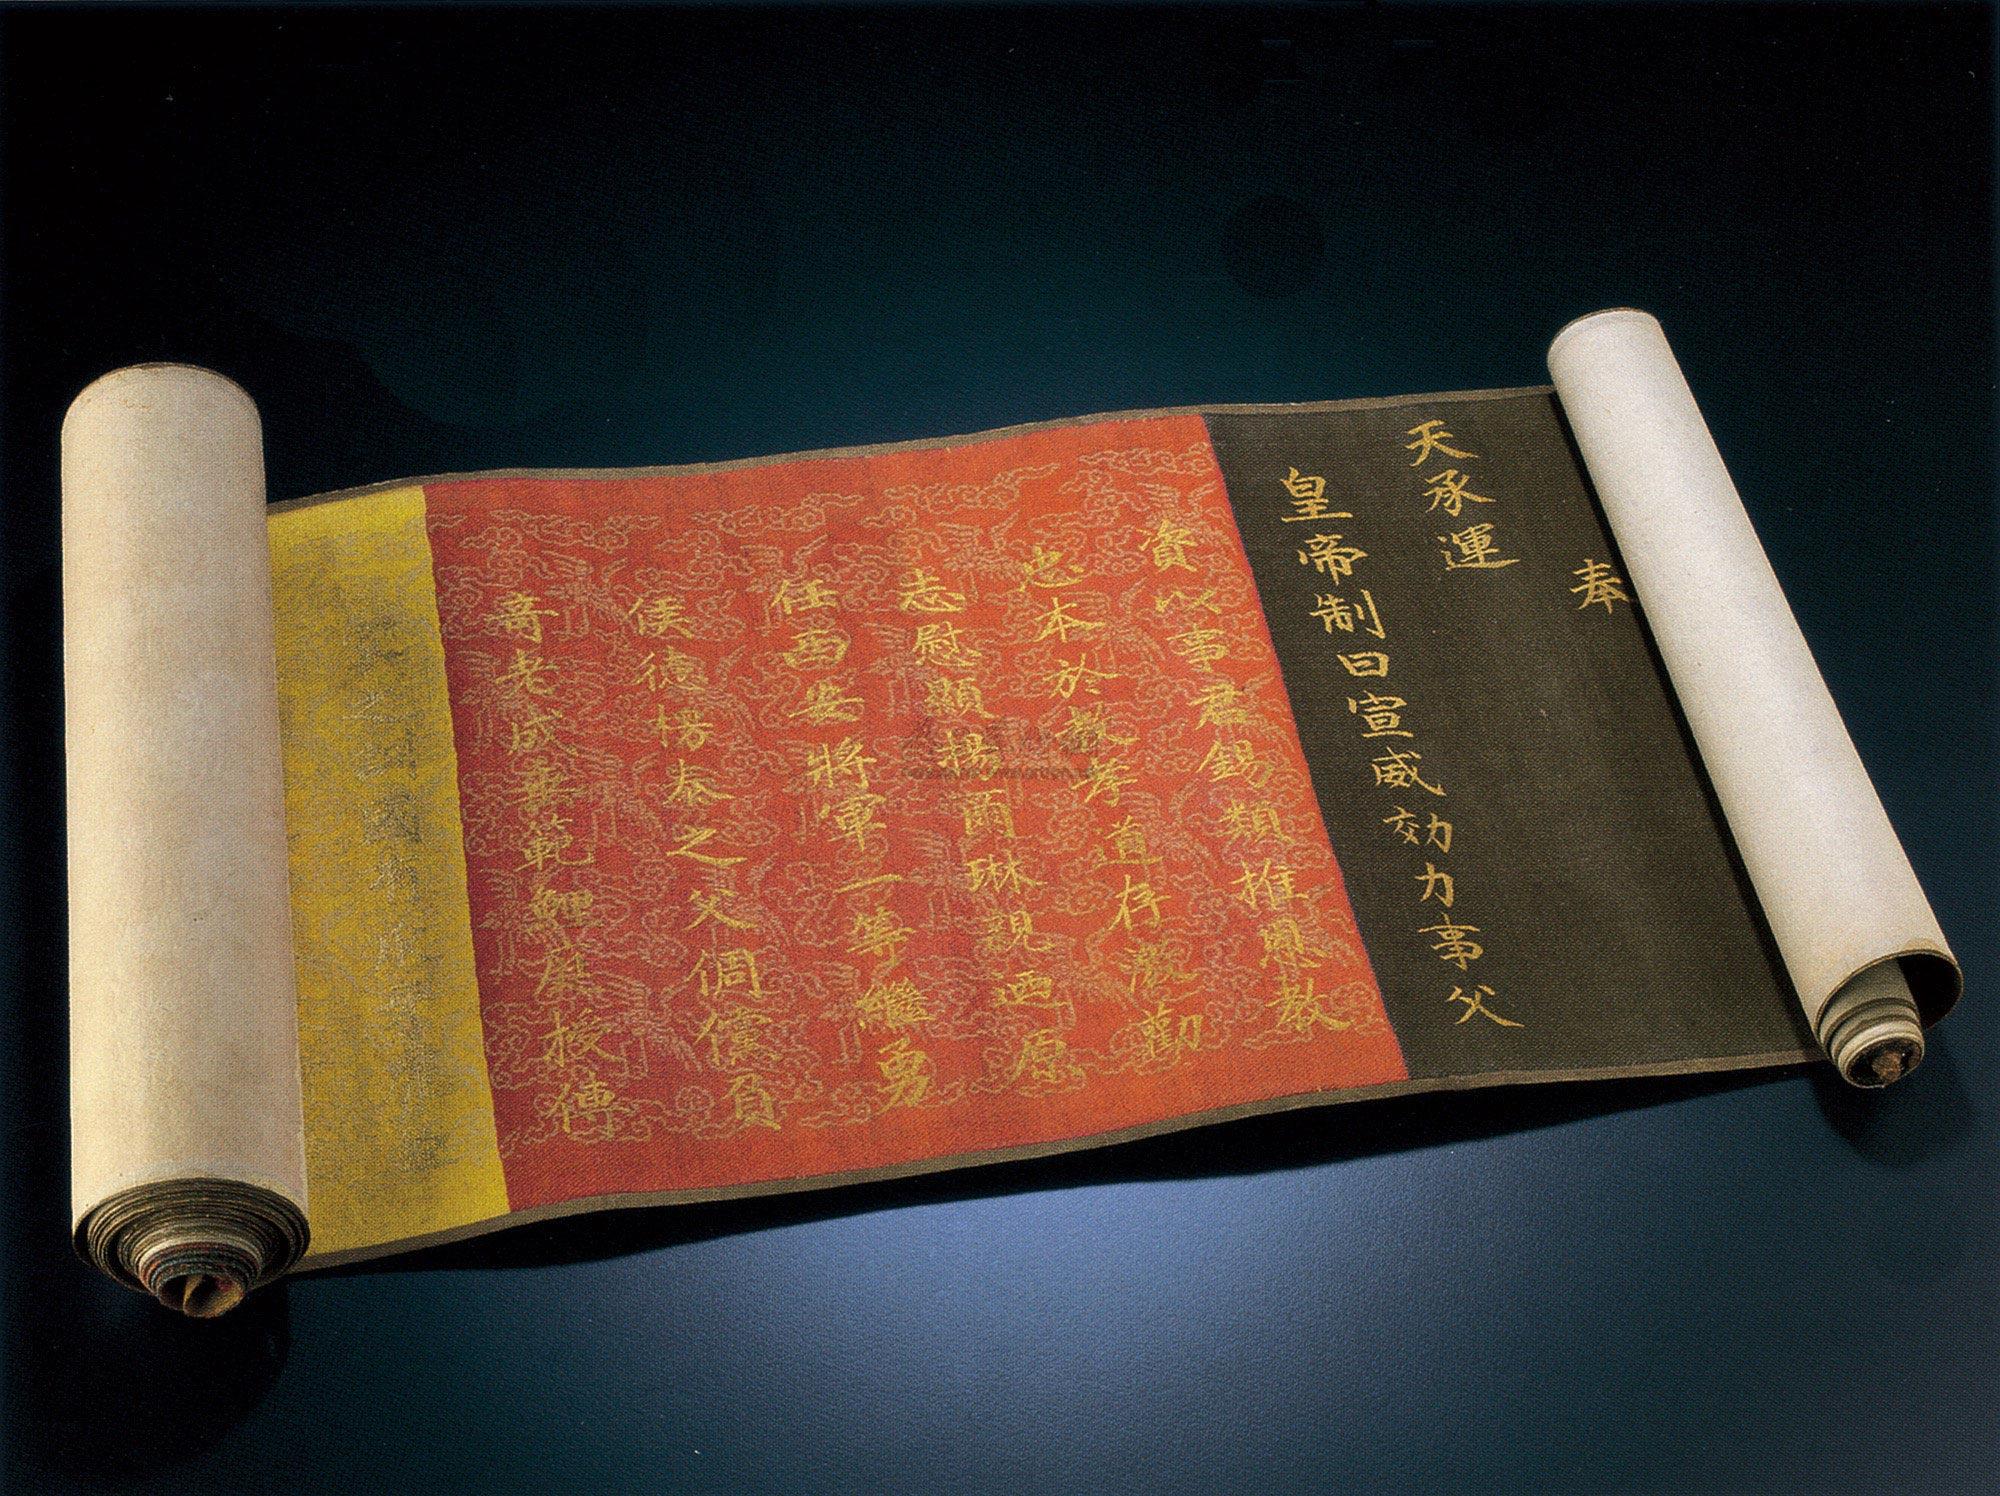 奉
天承運
皇帝制曰宣威効力事父
資以事君錫類推恩教
忠本於教孝道存激勸
志慰顯揚爾琳親迺原
任西安將軍一等繼勇
侯德楞泰之父倜儻負
奇老成垂範鯉庭授傳